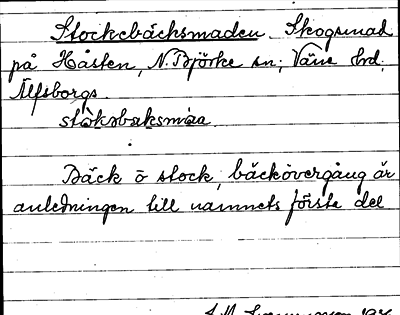 Stockebäcksmaden. Skogsmad
på Håsten, N. Björke sn; Väne hrd,
Älfsborgs.
ståkəbæksmåa
Bäck ō stock, bäckövergång är
anledningen till namnets förste del